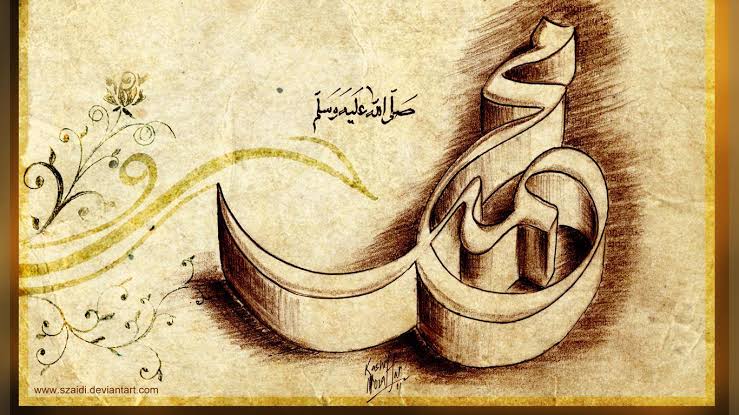 صَلَّى اللهُ عَلَيْهِ وَسَلَّم
محمد
www.szaidi.deviantart.com